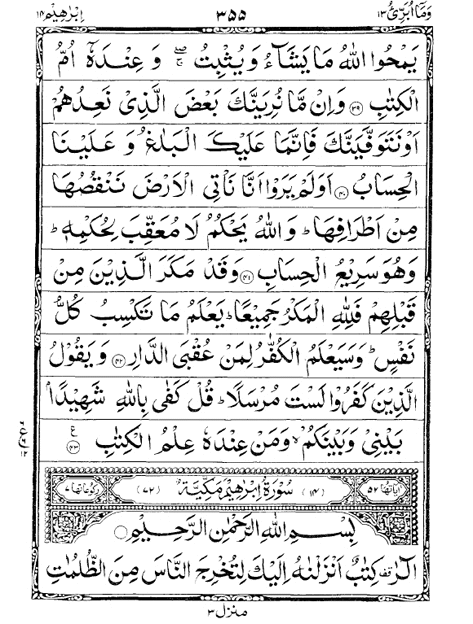 وما ابرئ ١٣ ٣٥٥ ابرهيم ١٤
يَمْحُوا اللّٰهُ مَا يَشَآءُ وَيُثْبِتُ ۖ وَعِنْدَهٗٓ اُمُّ
الْكِتٰبِ ﴿٣٩﴾ وَاِنْ مَّا نُرِيَنَّكَ بَعْضَ الَّذِيْ نَعِدُهُمْ
اَوْ نَتَوَفَّيَنَّكَ فَاِنَّمَا عَلَيْكَ الْبَلٰغُ وَعَلَيْنَا
الْحِسَابُ ﴿٤٠﴾ اَوَلَمْ يَرَوْا اَنَّا نَاْتِي الْاَرْضَ نَنْقُصُهَا
مِنْ اَطْرَافِهَا ؕ وَاللّٰهُ يَحْكُمُ لَا مُعَقِّبَ لِحُكْمِهٖ ؕ
وَهُوَ سَرِيْعُ الْحِسَابِ ﴿٤١﴾ وَقَدْ مَكَرَ الَّذِيْنَ مِنْ
قَبْلِهِمْ فَلِلّٰهِ الْمَكْرُ جَمِيْعًا ؕ يَعْلَمُ مَا تَكْسِبُ كُلُّ
نَفْسٍ ؕ وَسَيَعْلَمُ الْكُفّٰرُ لِمَنْ عُقْبَى الدَّارِ ﴿٤٢﴾ وَيَقُوْلُ
الَّذِيْنَ كَفَرُوْا لَسْتَ مُرْسَلًا ؕ قُلْ كَفٰى بِاللّٰهِ شَهِيْدًاۢ
بَيْنِيْ وَبَيْنَكُمْ ۙ وَمَنْ عِنْدَهٗ عِلْمُ الْكِتٰبِ ﴿٤٣﴾ ع
اٰياتها ٥٢ (١٤) سُوْرَةُ اِبْرٰهِيْمَ مَكِّيَّةٌ (٧٢) ركوعاتها ٧
بِسْمِ اللّٰهِ الرَّحْمٰنِ الرَّحِيْمِ
الٓرٰ ۟ كِتٰبٌ اَنْزَلْنٰهُ اِلَيْكَ لِتُخْرِجَ النَّاسَ مِنَ الظُّلُمٰتِ
منزل ٣